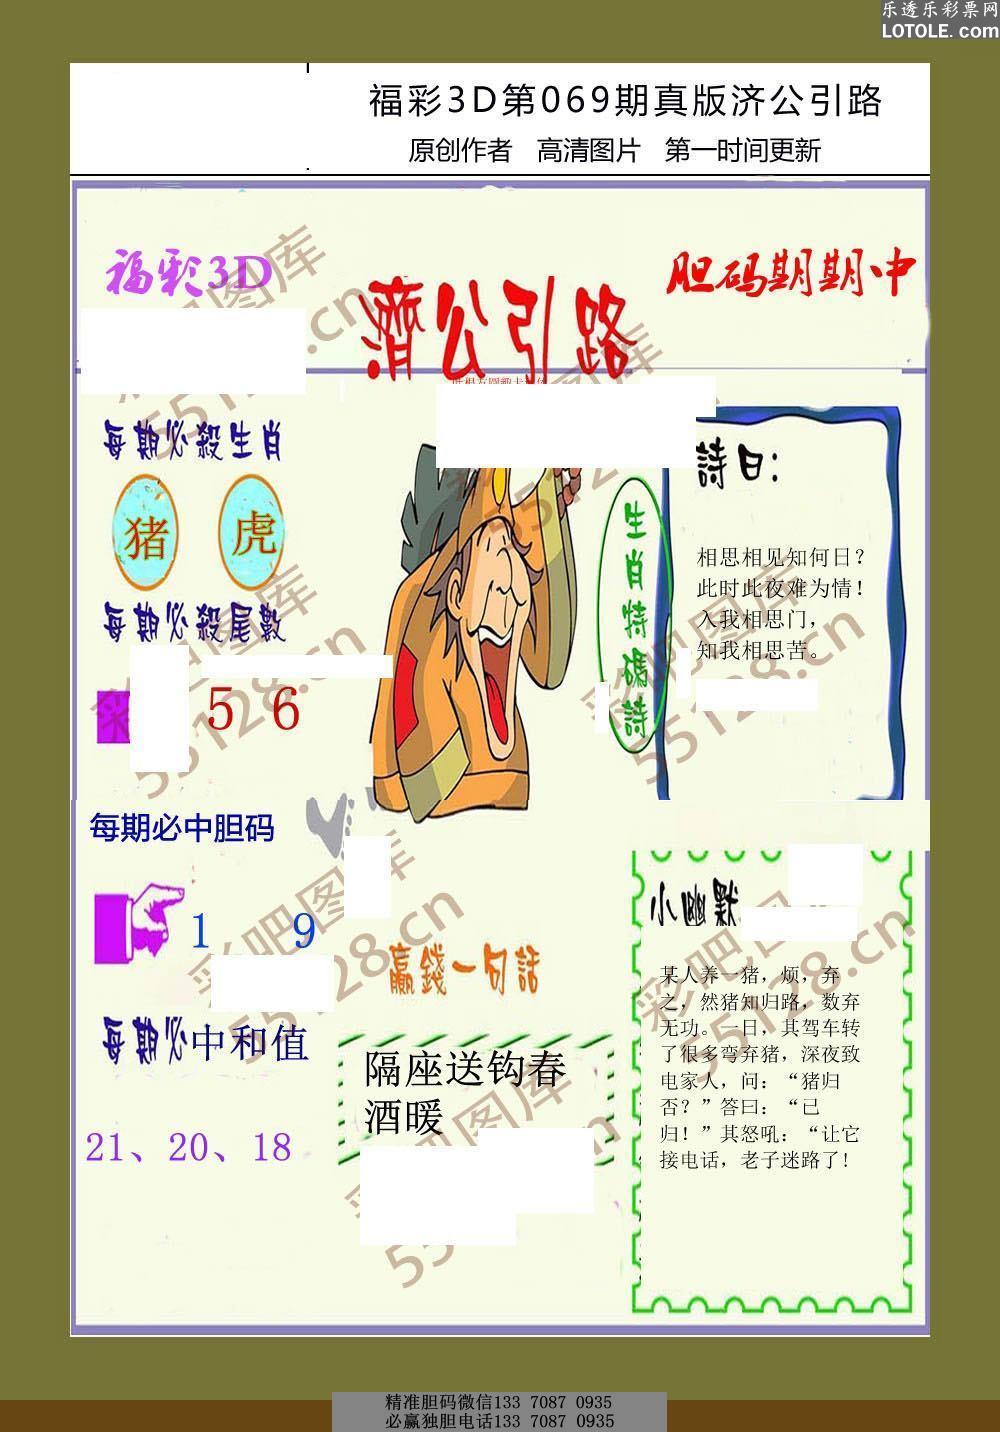 乐透乐彩票网
LOTOLE.com
福彩3D第069期真版济公引路
原创作者 高清图片 第一时间更新
福彩3D
濟公引路
胆码期期中
每期必殺生肖
猪 虎
每期必殺尾數
5 6
生肖特碼詩
詩曰：
相思相见知何日？
此时此夜难为情！
入我相思门，
知我相思苦。
每期必中胆码
1 9
每期必中和值
21、20、18
贏錢一句話
隔座送钩春
酒暖
小幽默
某人养一猪，烦，弃
之，然猪知归路，数弃
无功。一日，其驾车转
了很多弯弃猪，深夜致
电家人，问：“猪归
否？”答曰：“已
归！”其怒吼：“让它
接电话，老子迷路了!
彩吧图库
55128.cn
彩吧图库
55128.cn
彩吧图库
55128.cn
彩吧图库
55128.cn
精准胆码微信133 7087 0935
必赢独胆电话133 7087 0935